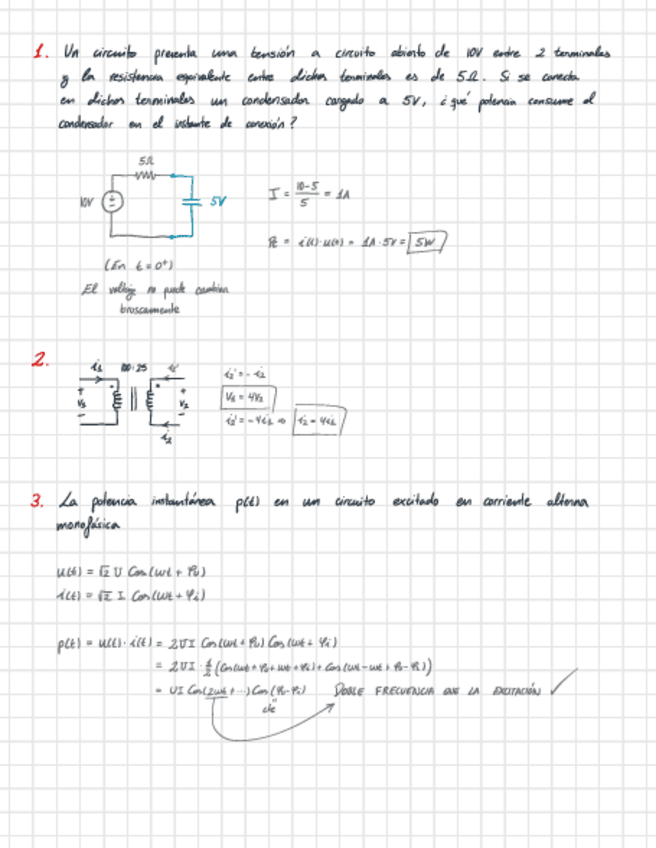 1. Un circuito presenta una tensión a circuito abierto de 10V entre 2 terminales
y la resistencia equivalente entre dichos terminales es de 5Ω. Si se conecta
en dichos terminales un condensador cargado a 5V, ¿qué potencia consume el
condensador en el instante de conexión?
5Ω
10V
5V
I = (10-5)/5 = 1A
= i(t)·u(t) = 1A·5V = 5W
(En t=0⁺)
El voltaje no puede cambiar
bruscamente
2.
i₁ 100:25
V₁ V₂
i₂
i₂' = -i₂
V₁ = 4V₂
i₂' = -4i₁ ⇒ i₂ = 4i₁
3. La potencia instantánea p(t) en un circuito excitado en corriente alterna
monofásica
u(t) = √2 U Cos(ωt + φᵤ)
i(t) = √2 I Cos(ωt + φᵢ)
p(t) = u(t)·i(t) = 2UI Cos(ωt + φᵤ) Cos(ωt + φᵢ)
= 2UI · 1/2 (Cos(ωt + φᵤ + ωt + φᵢ) + Cos(ωt - ωt + φᵤ - φᵢ))
= UI Cos(2ωt + ...) Cos(φᵤ - φᵢ) DOBLE FRECUENCIA QUE LA EXCITACIÓN ✓
cte